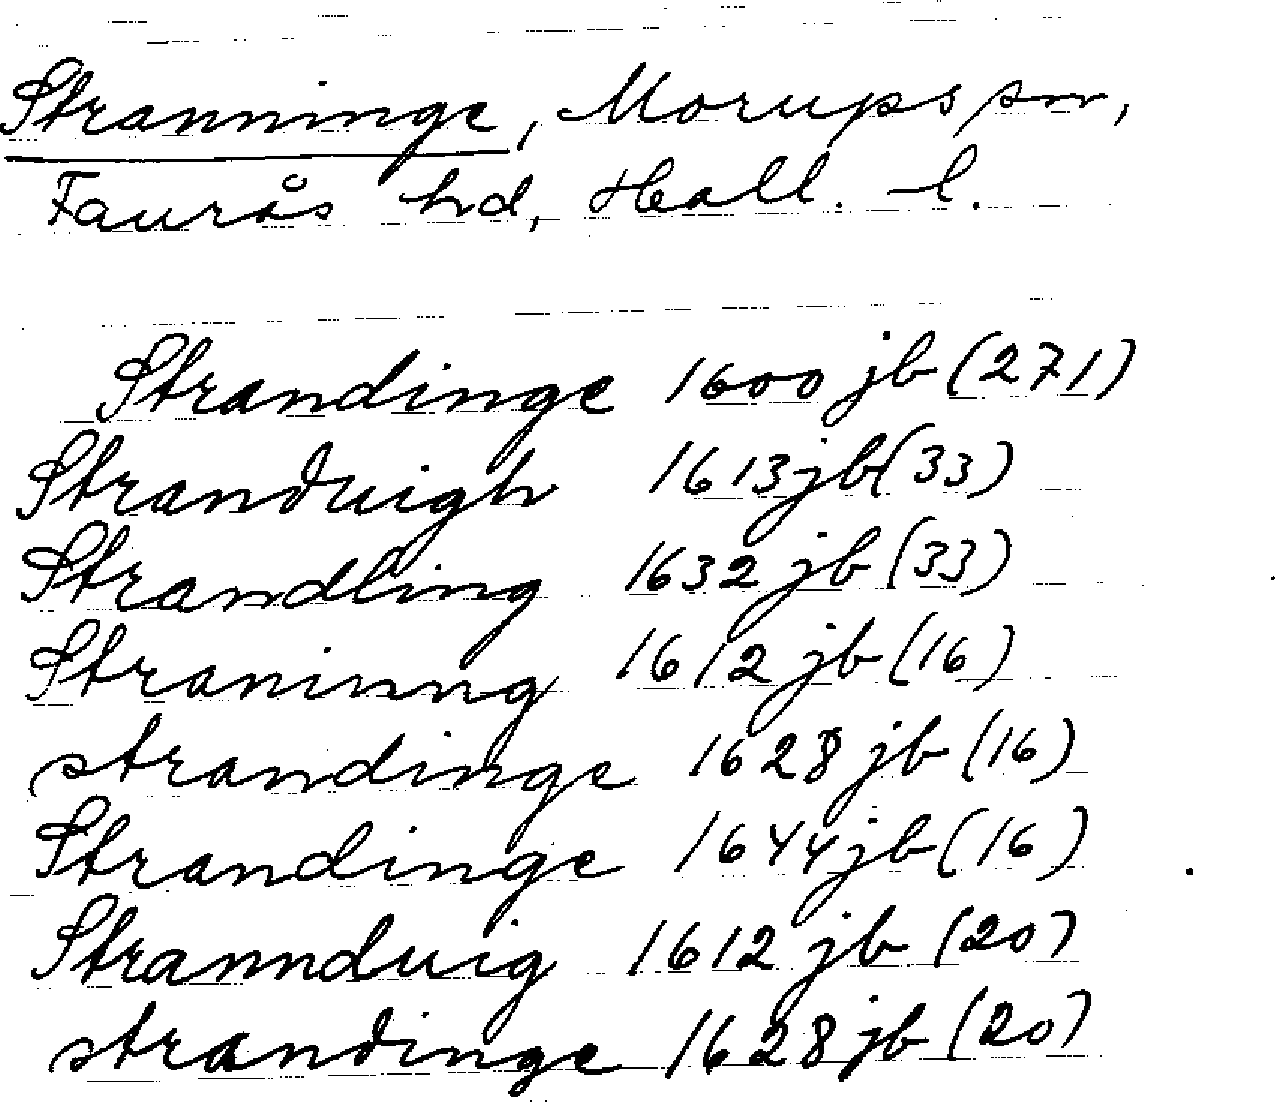 Stranninge, Morups sn,
Faurås hd, Hall. l.
Strandinge 1600 jb (271)
Stranduigh 1613 jb (33)
Strandling 1632 jb (33)
Straninng 1612 jb (16)
strandinge 1628 jb (16)
Strandinge 1644 jb (16)
Strannduig 1612 jb (20)
strandinge 1628 jb (20)